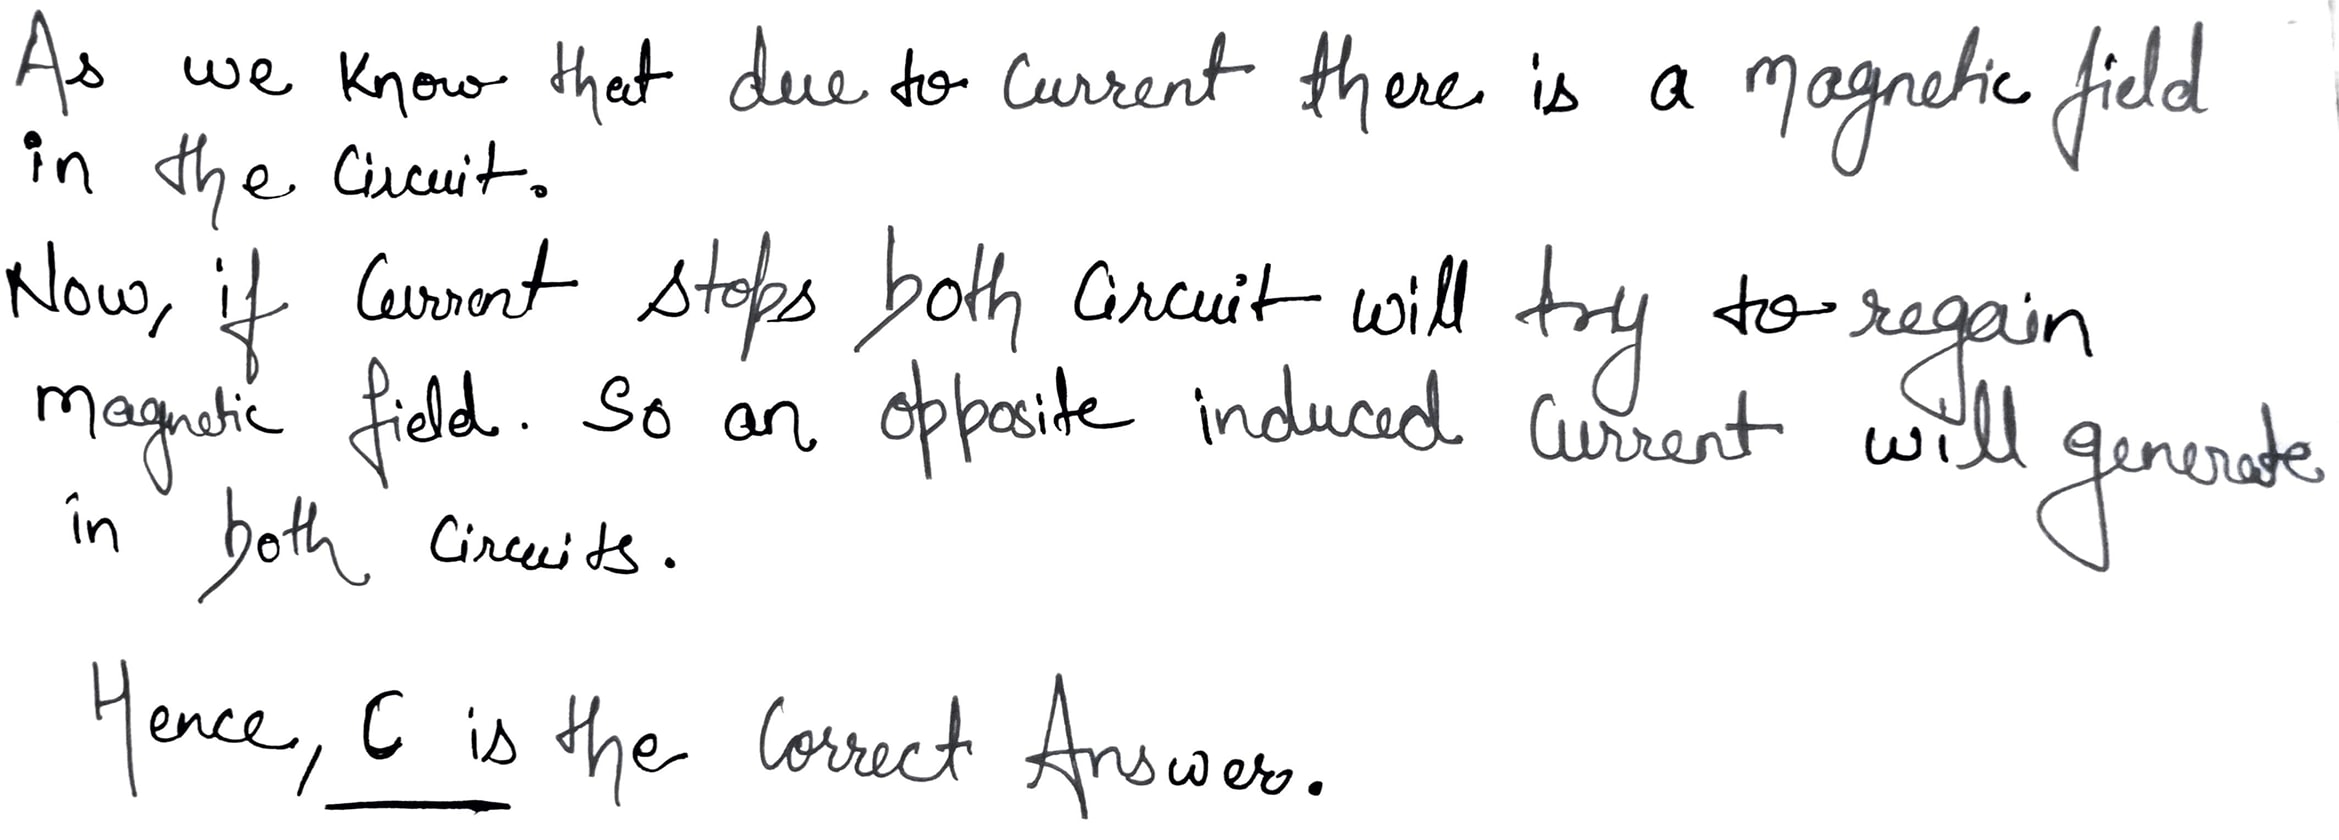 As we know that due to current there is a magnetic field
in the circuit.
Now, if current stops both circuit will try to regain
magnetic field. So an opposite induced current will generate
in both circuits.
Hence, C is the correct Answer.